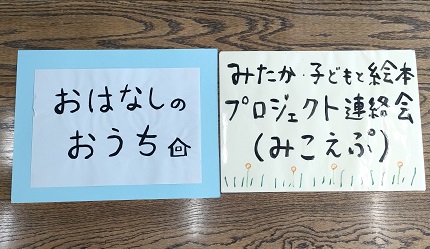 おはなしの
おうち
みたか・子どもと絵本
プロジェクト連絡会
(みこえぷ)